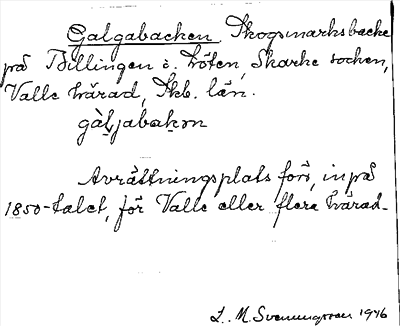 Galgabacken Skogsmarksbacke
på Billingen i. Höten, Skarke socken,
Valle härad, Skb. län.
gàljabakən
Avrättningsplats förr, inpå
1850-talet, för Valle eller flera härad.
L. M. Svenungsson 1946